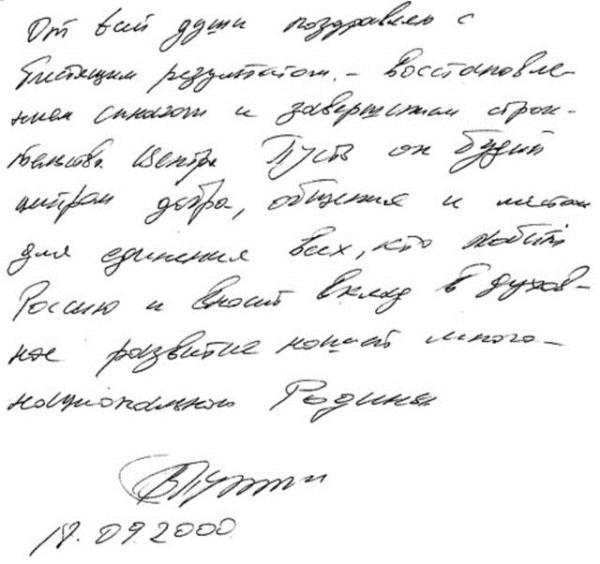 От всей души поздравляю с
блестящим результатом – восстановле-
нием синагоги и завершением строи-
тельства Центра Пусть он будет
центром добра, общения и местом
для единения всех, кто любит
Россию и вносит вклад в духов-
ное развитие нашей много-
национальной Родины
ВПутин
18.09.2000